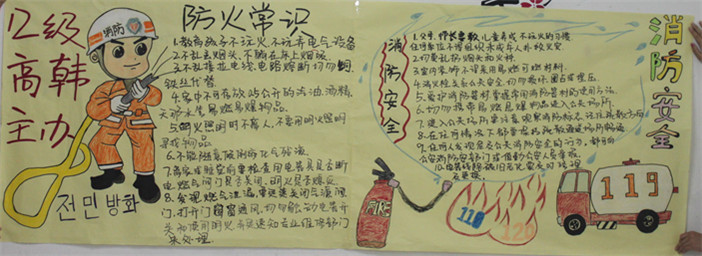 12级
高韩
主办
消防
전민방화
防火常识
1.教育孩子不玩火,不玩弄电气设备
2.不乱丢烟头,不躺在床上吸烟。
3.不乱接乱电线,电路熔断切勿用铜,
铁丝代替
4.家中不可存放超过0.5公升的汽油,酒精,
天那水等易燃易爆物品。
5.明火照明时不离人,不要用明火照明
寻找物品
6.不能随意倾倒液化气残液。
7.离家或睡觉前要检查用电器具是否断
电,燃气阀门是否关闭,明火是否熄灭。
8.发现燃气泄漏,要迅速关闭气源阀
门,打开门窗通风,切勿触动电器开
关和使用明火,并迅速通知专业维修部门
来处理
消防安全
消防安全
1.父母,师长要教儿童养成不玩火的习惯
任何单位不得组织未成年人扑救火灾
2.切莫乱扔烟头和火种。
3.室内装修不宜采用易燃可燃材料
4.消火栓关系公共安全,切勿损坏,圈占或埋压
5.爱护消防器材,掌握常用消防器材的使用方法
6.切勿携带易燃易爆物品进入公共场所。
7.进入公共场所要注意观察消防标志,记住疏散方向
8.在任何情况下都要保持疏散通道畅通
9.任何人发现危及公共消防安全的行为,都可向
公安消防部门或值勤公安人员举报。
FIRE
119
120
119